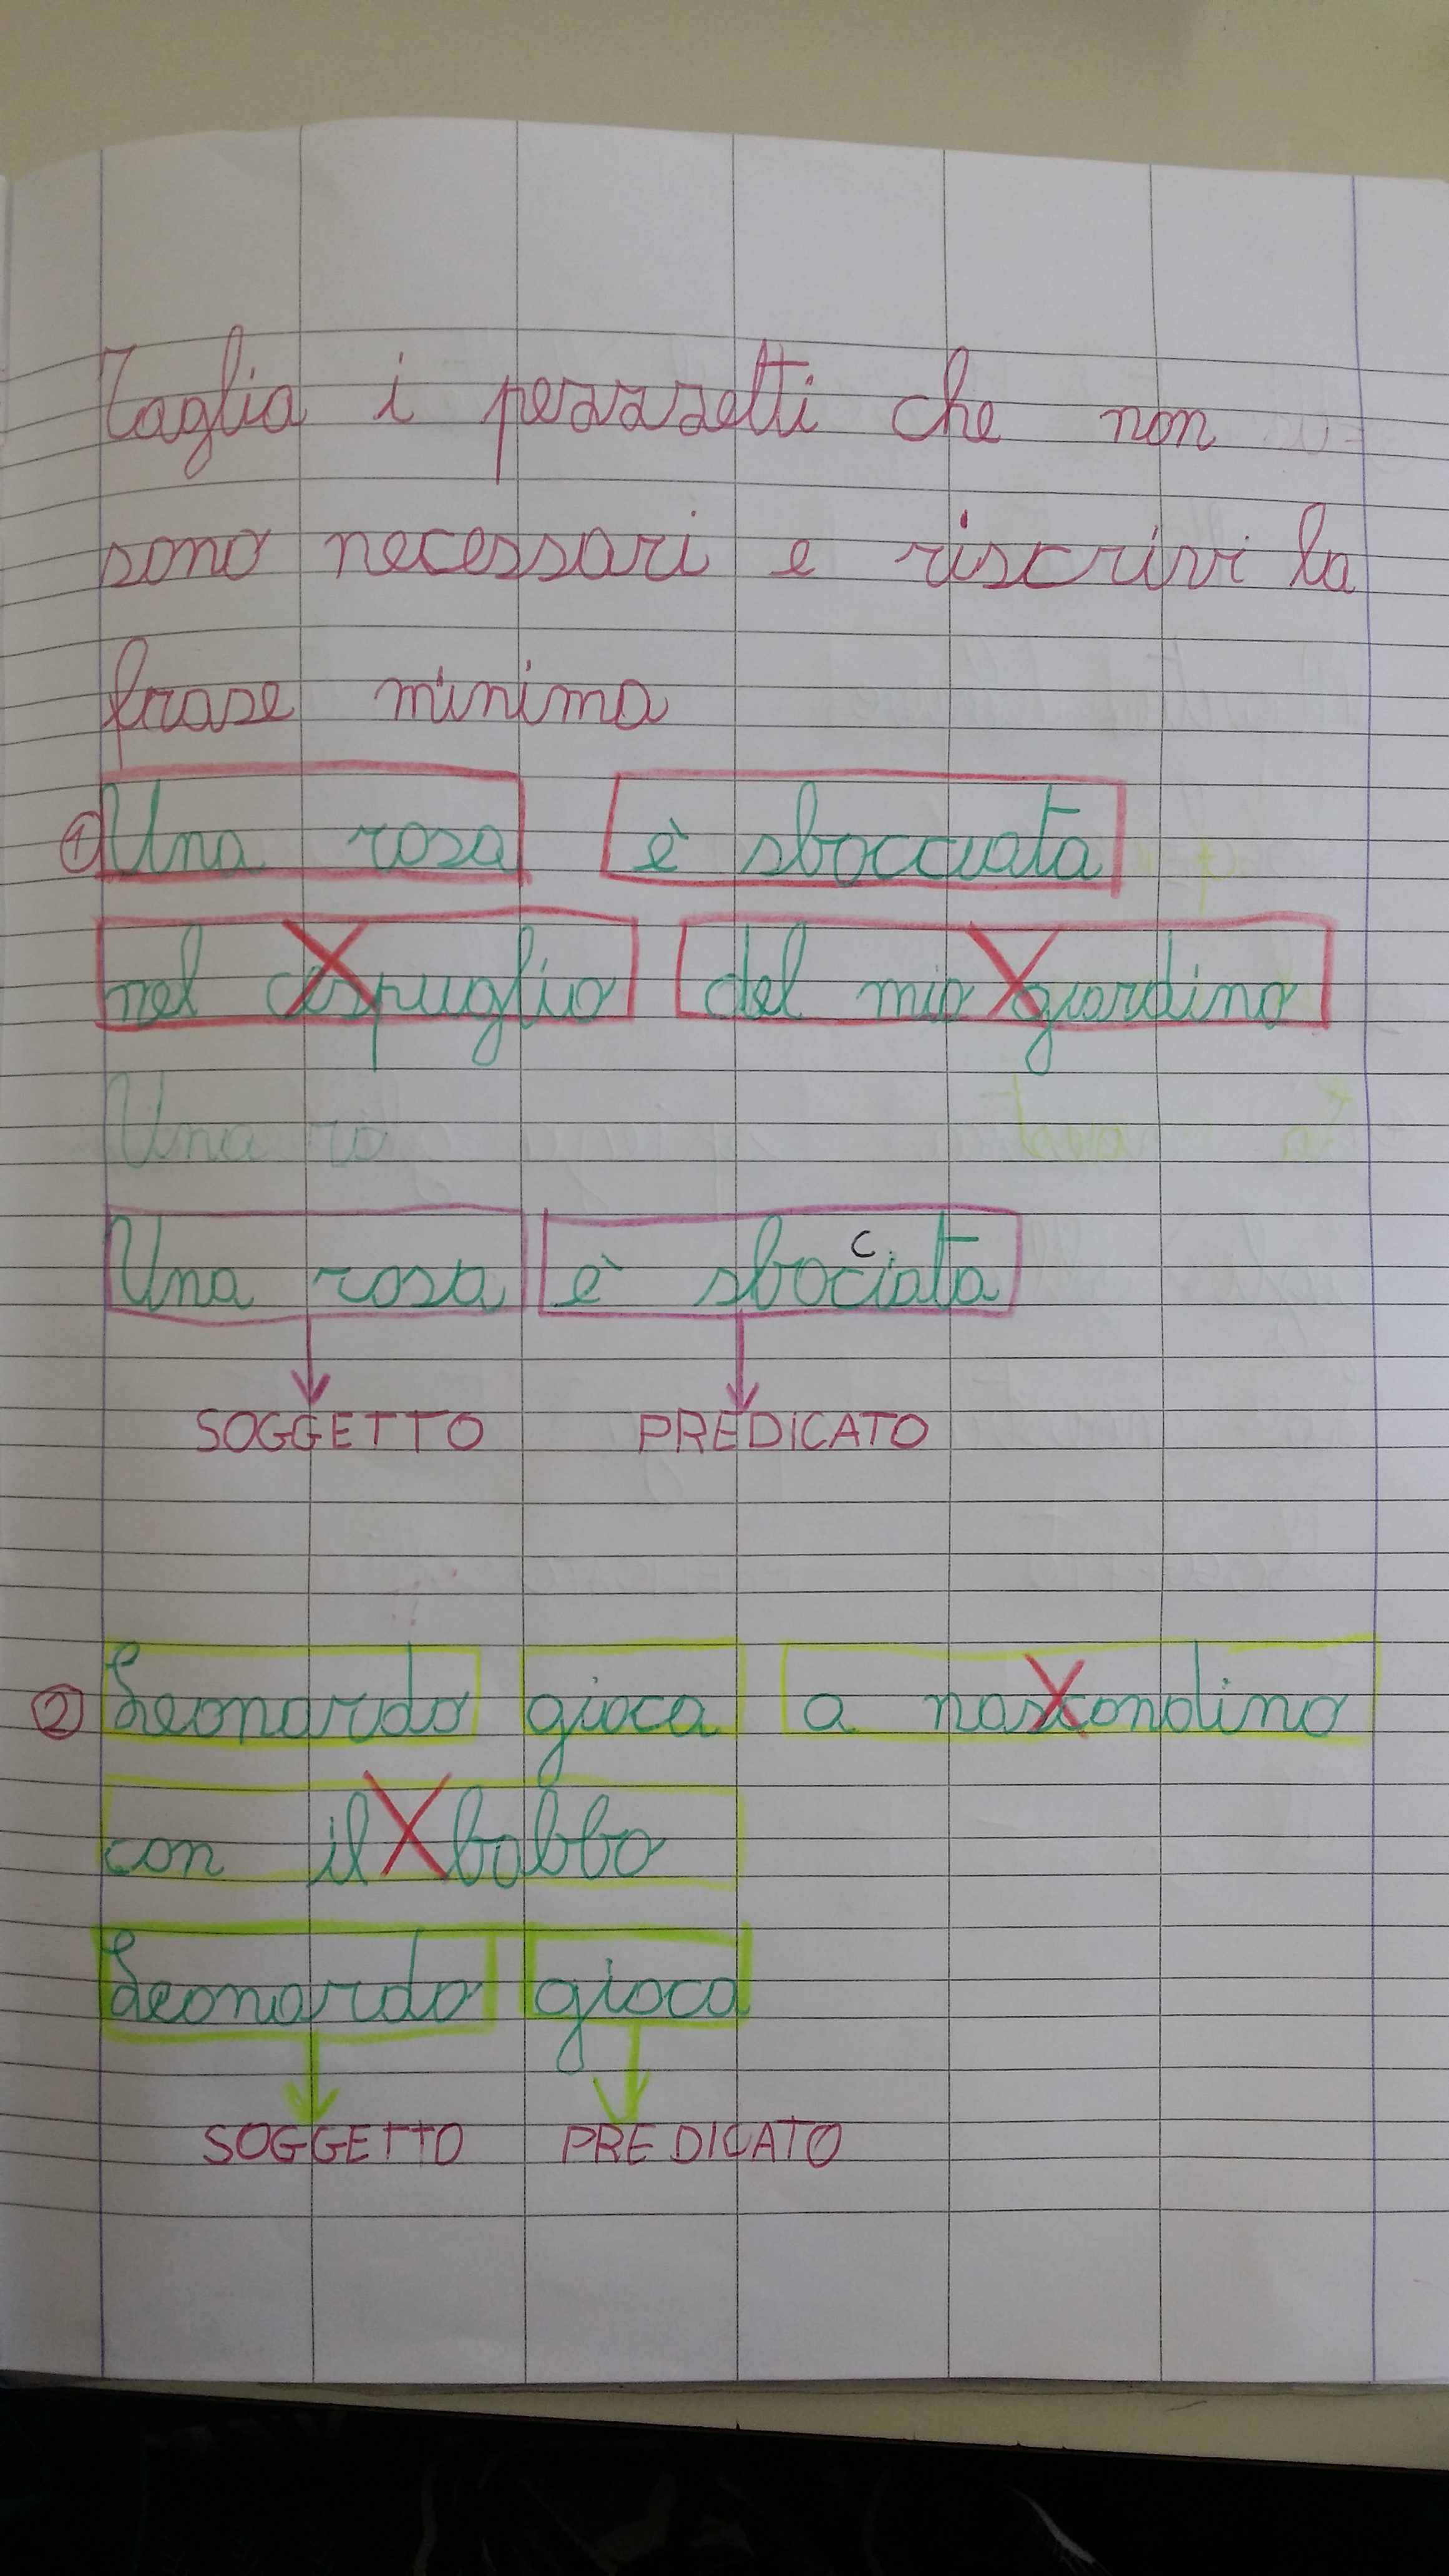 Taglia i pezzzetti che non
sono necessari e riscrivi la
frase minima
① Una rosa è sbocciata
nel cespuglio del mio giardino
Una ro
Una rosa è sbocciata
SOGGETTO PREDICATO
② Leonardo gioca a nascondino
con il babbo
Leonardo gioca
SOGGETTO PREDICATO